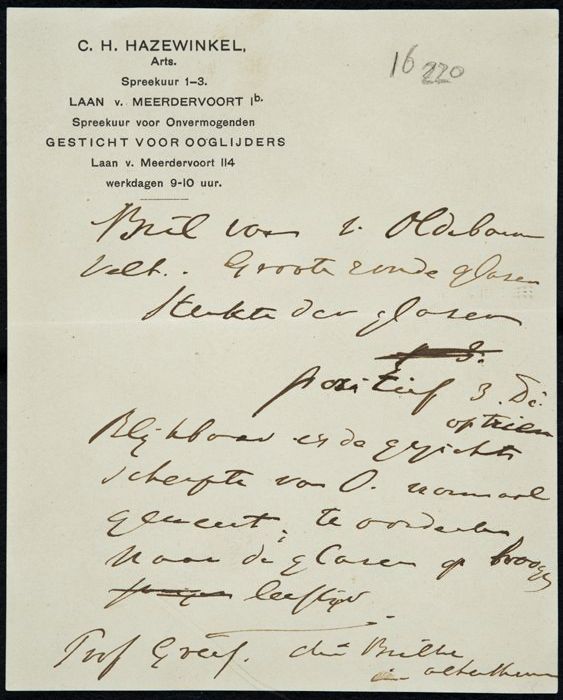 C. H. HAZEWINKEL,
Arts.
Spreekuur 1–3.
LAAN v. MEERDERVOORT 1b.
Spreekuur voor Onvermogenden
GESTICHT VOOR OOGLIJDERS
Laan v. Meerdervoort 114
werkdagen 9-10 uur.
16 220
Bril van v. Oldebarne
velt. Groote ronde glasen
Sterkte der glasen
positief 3. Di
optrien
Blijkbaar is de gezichts
scherpte van O. normaal
geweest, te oordeelen
naar de glasen op hooge
leeftijd
Prof Greef. die Brille